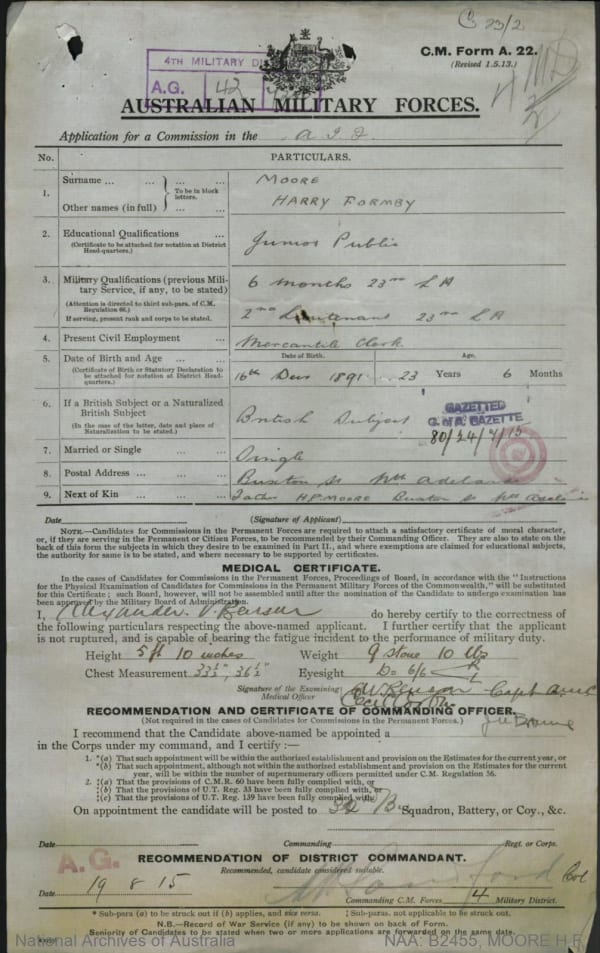 C 23/2
C.M. Form A. 22.
(Revised 1.5.13.)
4TH MILITARY
A.G. 42
AUSTRALIAN MILITARY FORCES.
Application for a Commission in the A I F
No. PARTICULARS.
1. Surname ... ... ... ... MOORE
To be in block letters.
Other names (in full) ... ... HARRY FORMBY
2. Educational Qualifications ... Junior Public
(Certificate to be attached for notation at District Head-quarters.)
3. Military Qualifications (previous Mili-tary Service, if any, to be stated) 6 months 23rd L A
(Attention is directed to third sub-para. of C.M. Regulation 66.)
If serving, present rank and corps to be stated. 2nd Lieutenant 23rd L A
4. Present Civil Employment ... Mercantile Clerk
5. Date of Birth and Age ... ... Date of Birth. Age.
(Certificate of Birth or Statutory Declaration to be attached for notation at District Head-quarters.) 16th 1891 23 Years 6 Months
6. If a British Subject or a Naturalized British Subject British Subject
(In the case of the latter, date and place of Naturalization to be stated.)
GAZETTED
C. of A. GAZETTE
80/24/7/15
7. Married or Single ... ... Single
8. Postal Address ... ... ... Buxton St Nth Adelaide
9. Next of Kin ... ... ... Father H.P. MOORE Buxton St Nth Adelaide
Date (Signature of Applicant)
NOTE.—Candidates for Commissions in the Permanent Forces are required to attach a satisfactory certificate of moral character,
or, if they are serving in the Permanent or Citizen Forces, to be recommended by their Commanding Officer. They are also to state on
the back of this form the subjects in which they desire to be examined in Part II., and where exemptions are claimed for educational subjects,
the authority for same is to be stated, and where necessary to be supported by certificates.
MEDICAL CERTIFICATE.
In the cases of Candidates for Commissions in the Permanent Forces, Proceedings of Board, in accordance with the "Instructions
for the Physical Examination of Candidates for Commissions in the Permanent Military Forces of the Commonwealth," will be substituted
for this Certificate; such Board, however, will not be assembled until after the nomination of the Candidate to undergo examination has
been approved by the Military Board of Administration.
I, Alexander V Benson do hereby certify to the correctness of
the following particulars respecting the above-named applicant. I further certify that the applicant
is not ruptured, and is capable of bearing the fatigue incident to the performance of military duty.
Height 5 ft 10 inches Weight 9 stone 10 lbs
Chest Measurement 33½", 36½" Eyesight D= 6/6 R L
Signature of the Examining Medical Officer AVBenson Capt AAMC
RECOMMENDATION AND CERTIFICATE OF COMMANDING OFFICER.
(Not required in the cases of Candidates for Commissions in the Permanent Forces.)
I recommend that the Candidate above-named be appointed a
in the Corps under my command, and I certify :—
1. *(a) That such appointment will be within the authorized establishment and provision on the Estimates for the current year, or
*(b) That such appointment, although not within the authorized establishment and provision on the Estimates for the current
year, will be within the number of supernumerary officers permitted under C.M. Regulation 56.
2. ‡(a) That the provisions of C.M.R. 60 have been fully complied with, or
‡(b) That the provisions of U.T. Reg. 33 have been fully complied with, or
‡(c) That the provisions of U.T. Reg. 139 have been fully complied with.
On appointment the candidate will be posted to Squadron, Battery, or Coy., &c.
Date Commanding Regt. or Corps.
A.G.
RECOMMENDATION OF DISTRICT COMMANDANT.
Recommended, candidate considered suitable.
Col
Date 19 8 15 Commanding C.M. Forces, 4 Military District.
* Sub-para (a) to be struck out if (b) applies, and vice versa. ‡ Sub-paras. not applicable to be struck out.
N.B.—Record of War Service (if any) to be shown on back of Form.
Seniority of Candidates to be stated when two or more applications are forwarded on the same date.
National Archives of Australia NAA: B2455, MOORE H F